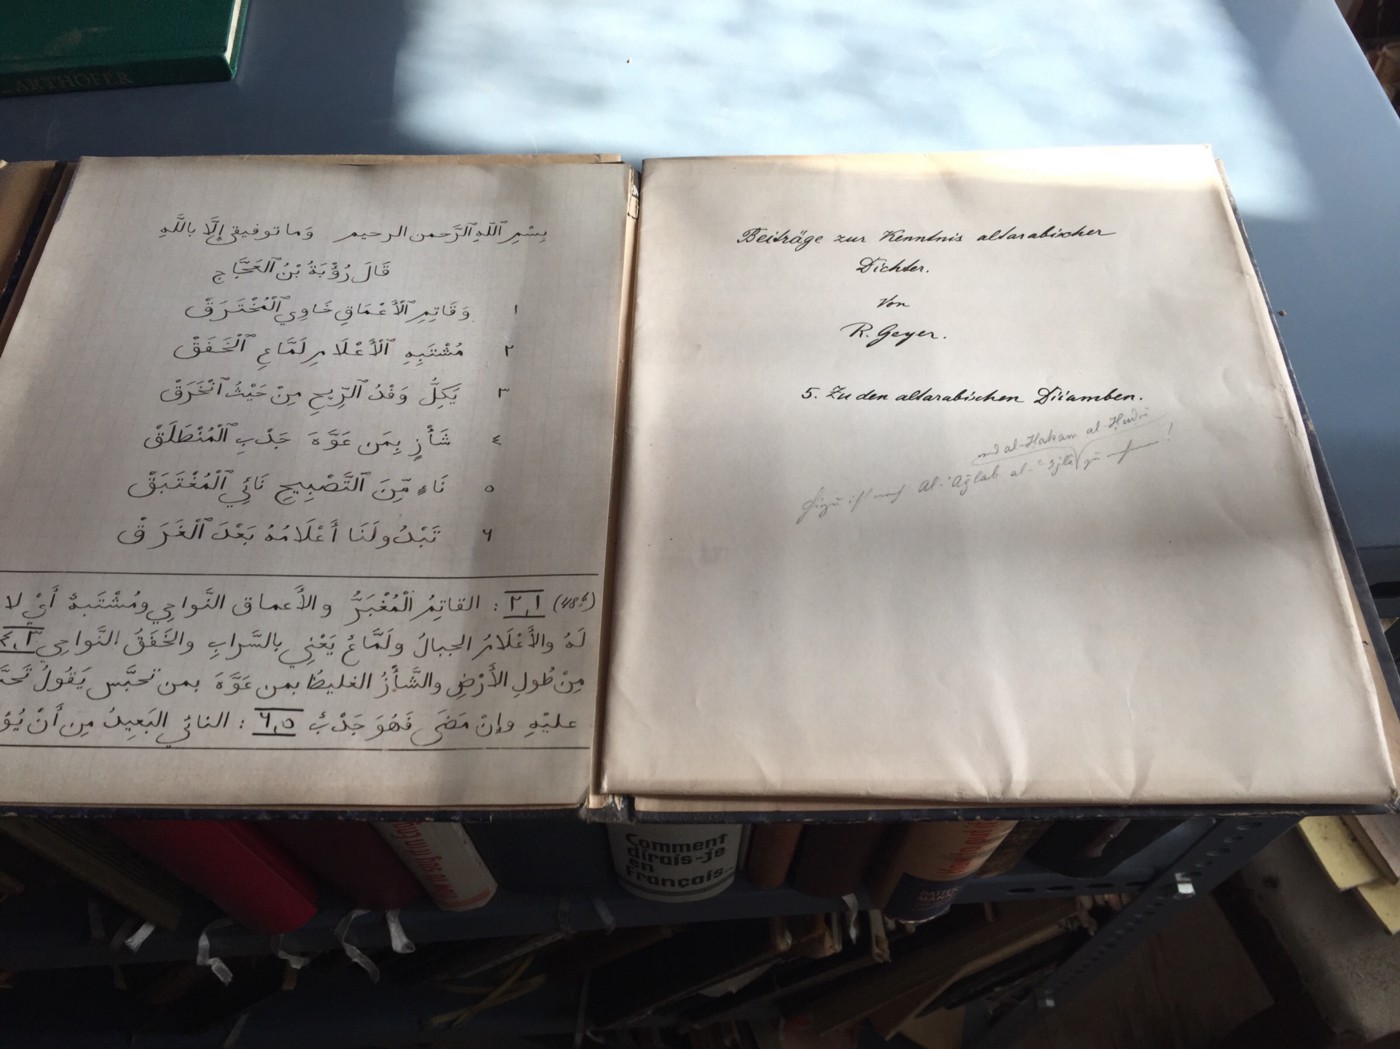 ARTHOFER
بِسْمِ ٱللّٰهِ ٱلرَّحمن الرحيم وَما توفيقى إِلَّا بِاللَّهِ
قَالَ رُؤْبَةُ بْنُ ٱلعَجَّاج
١ وَقَاتِمِ ٱلْأَعْمَاقِ خَاوِي ٱلْمُخْتَرَقْ
٢ مُشْتَبِهِ ٱلْأَعْلَامِ لَمَّاعِ ٱلْخَفَقْ
٣ يَكِلُّ وَفْدُ ٱلرِّيحِ مِنْ حَيْثُ ٱنْخَرَقْ
٤ شَأْزٍ بِمَن عَوَّهَ جَدْبِ ٱلْمُنْطَلَقْ
٥ نَاءٍ مِّنَ ٱلتَّصْبِيحِ نَائِي ٱلْمُغْتَبَقْ
٦ تَبْدُو لَنَا أَعْلَامُهُ بَعْدَ ٱلْغَرَقْ
(48b) ٢,١ : القاتِمُ ٱلْمُغْبَرُّ والأَعماق النَّواحِي ومُشْتَبهٌ أَيْ لا
لَهُ والأَعْلَامُ الجبالُ ولَمَّاعُ يَعْنِي بالسَّرابِ والخَفَقُ النَّواحِي ٤,٣
مِنْ طُولِ الأَرْضِ والشَّأْزُ الغليظُ بمن عَوَّهَ بمن تحبَّس يَقُولُ
عليْهِ وإنْ مَضَى فَهُوَ جَدْبٌ ٦,٥ : النائي البَعِيدُ مِن أَنْ
Beiträge zur Kenntnis altarabischer
Dichter.
Von
R. Geyer.
5. Zu den altarabischen Diiamben.
al-Hakam al-Ḥuḍrī
Al-'Aġlab al-ʿIǧlī
Comment
dirais-je
en
français..